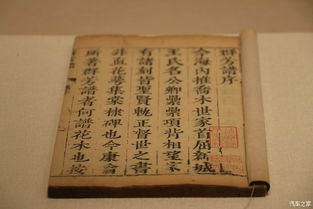 群芳譜序
今海內推喬木世家首屈新城
王氏名公卿纍纍項背相望家
有譜刻皆聖賢軌正督世之書
非直花萼集棠棣碑也今康宇
所著群芳譜者何譜花木也按
汽车之家